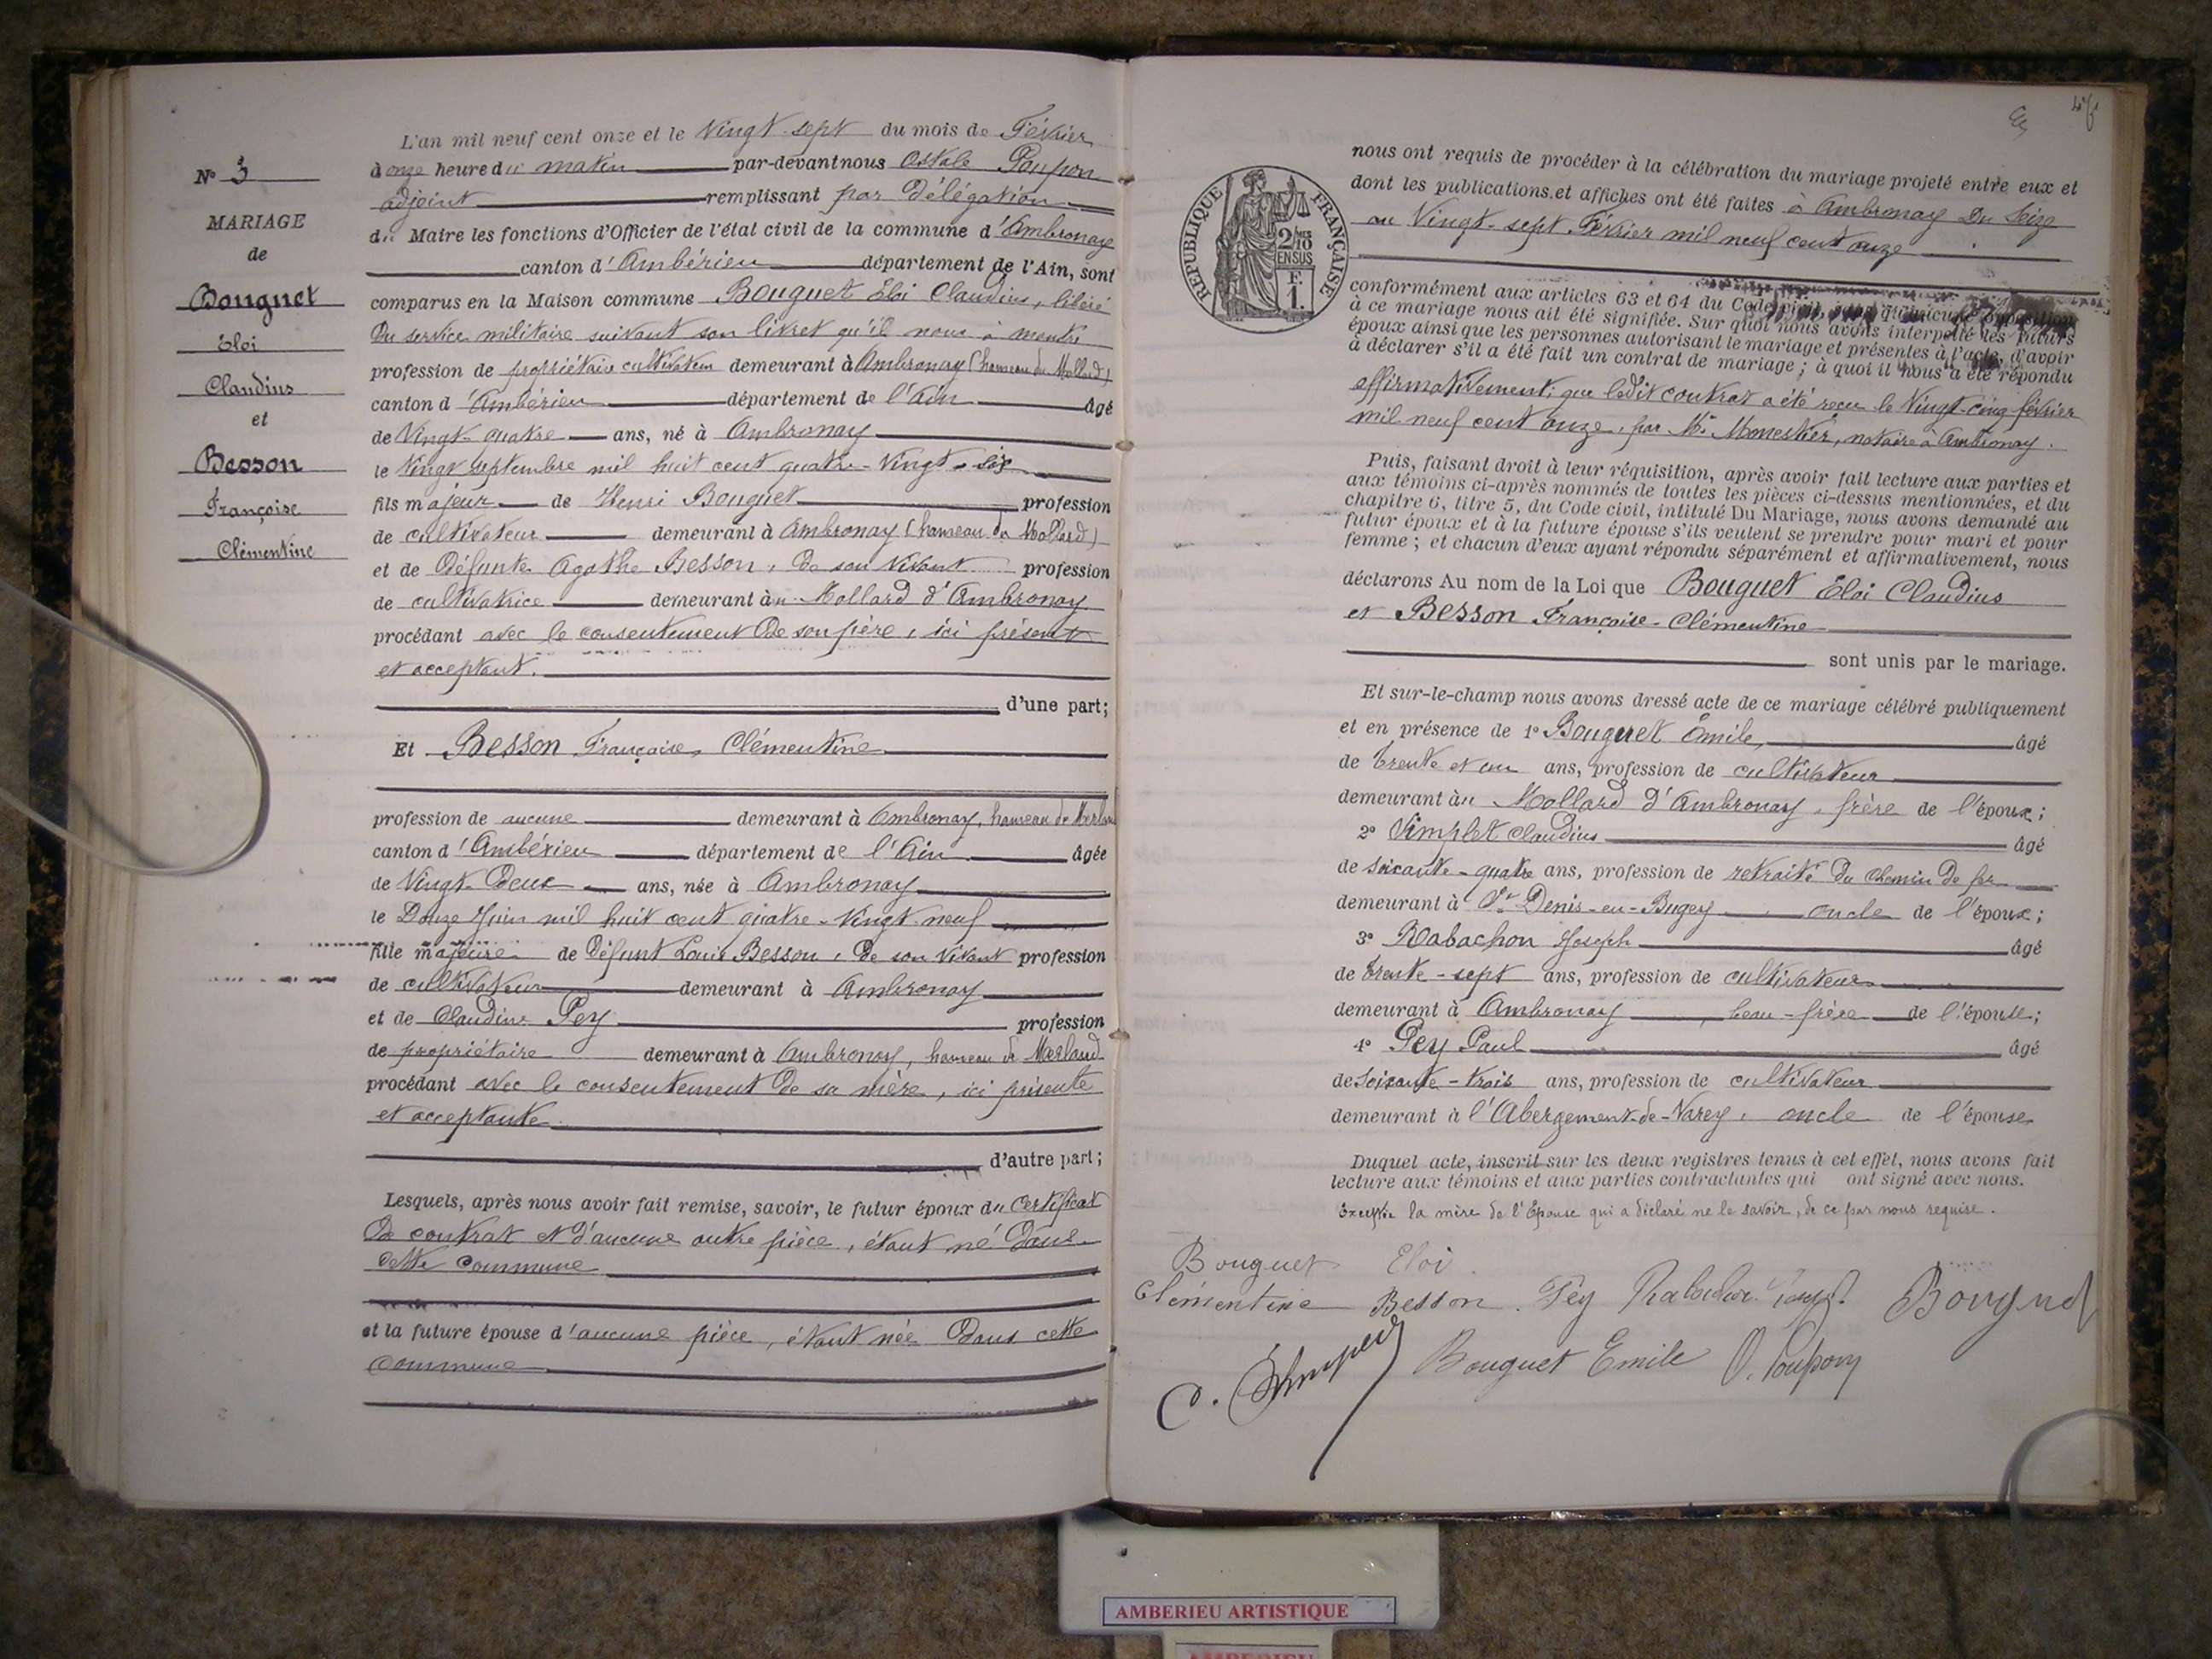 L'an mil neuf cent onze et le Vingt-sept du mois de Février
à onze heure du matin par-devant nous Poupon
adjoint remplissant par délégation
du Maire les fonctions d'Officier de l'état civil de la commune d'Ambronay
canton d'Ambérieu département de l'Ain, sont
comparus en la Maison commune Bouguet Éloi Claudius, libéré
du service militaire suivant son livret qu'il nous a montré
profession de propriétaire cultivateur demeurant à Ambronay (hameau du Mollard)
canton d'Ambérieu département de l'Ain âgé
de Vingt-quatre ans, né à Ambronay
le Vingt septembre mil huit cent quatre-vingt-six
fils majeur de Henri Bouguet profession
de cultivateur demeurant à Ambronay (hameau du Mollard)
et de Défunte Agathe Besson, de son vivant profession
de cultivatrice demeurant au Mollard d'Ambronay
procédant avec le consentement de son père, ici présent
et acceptant.
d'une part;
Et Besson Françoise, Clémentine
profession de aucune demeurant à Ambronay, hameau de Merland
canton d'Ambérieu département de l'Ain âgée
de Vingt-Deux ans, née à Ambronay
le Douze Juin mil huit cent quatre-vingt-neuf
fille majeure de Défunt Louis Besson, de son vivant profession
de cultivateur demeurant à Ambronay
et de Claudine Pey profession
de propriétaire demeurant à Ambronay, hameau de Merland
procédant avec le consentement de sa mère, ici présente
et acceptante.
d'autre part;
Lesquels, après nous avoir fait remise, savoir, le futur époux du certificat
de contrat et d'aucune autre pièce, étant né dans
cette commune
et la future épouse d'aucune pièce, étant née dans cette
commune
N° 3
MARIAGE
de
Bouguet
Éloi
Claudius
et
Besson
Françoise
Clémentine
RÉPUBLIQUE FRANÇAISE
2/10 EN SUS
F.
1.
nous ont requis de procéder à la célébration du mariage projeté entre eux et
dont les publications et affiches ont été faites à Ambronay du Seize
au Vingt-sept Février mil neuf cent onze
conformément aux articles 63 et 64 du Code civil, sans qu'aucune opposition
à ce mariage nous ait été signifiée. Sur quoi nous avons interpellé les futurs
époux ainsi que les personnes autorisant le mariage et présentes à l'acte, d'avoir
à déclarer s'il a été fait un contrat de mariage; à quoi il nous a été répondu
affirmativement; que ledit contrat a été reçu le Vingt-cinq février
mil neuf cent onze, par Me Monestier, notaire à Ambronay.
Puis, faisant droit à leur réquisition, après avoir fait lecture aux parties et
aux témoins ci-après nommés de toutes les pièces ci-dessus mentionnées, et du
chapitre 6, titre 5, du Code civil, intitulé Du Mariage, nous avons demandé au
futur époux et à la future épouse s'ils veulent se prendre pour mari et pour
femme; et chacun d'eux ayant répondu séparément et affirmativement, nous
déclarons Au nom de la Loi que Bouguet Éloi Claudius
et Besson Françoise-Clémentine
sont unis par le mariage.
Et sur-le-champ nous avons dressé acte de ce mariage célébré publiquement
et en présence de 1° Bouguet Émile, âgé
de trente et un ans, profession de cultivateur
demeurant au Mollard d'Ambronay, frère de l'époux;
2° Claudius âgé
de soixante-quatre ans, profession de retraité du Chemin de fer
demeurant à St Denis-en-Bugey oncle de l'époux;
3° Rabachon Joseph âgé
de trente-sept ans, profession de cultivateur
demeurant à Ambronay, beau-frère de l'épouse;
4° Pey Paul âgé
de Soixante-trois ans, profession de cultivateur
demeurant à l'Abergement-de-Varey, oncle de l'épouse
Duquel acte, inscrit sur les deux registres tenus à cet effet, nous avons fait
lecture aux témoins et aux parties contractantes qui ont signé avec nous.
Exceptée la mère de l'Épouse qui a déclaré ne le savoir, de ce par nous requise.
Bouguet Eloi
Clémentine Besson. Pey Rabachon Joseph Bouguet
Bouguet Emile O. Poupon
AMBERIEU ARTISTIQUE
AMBERIEU